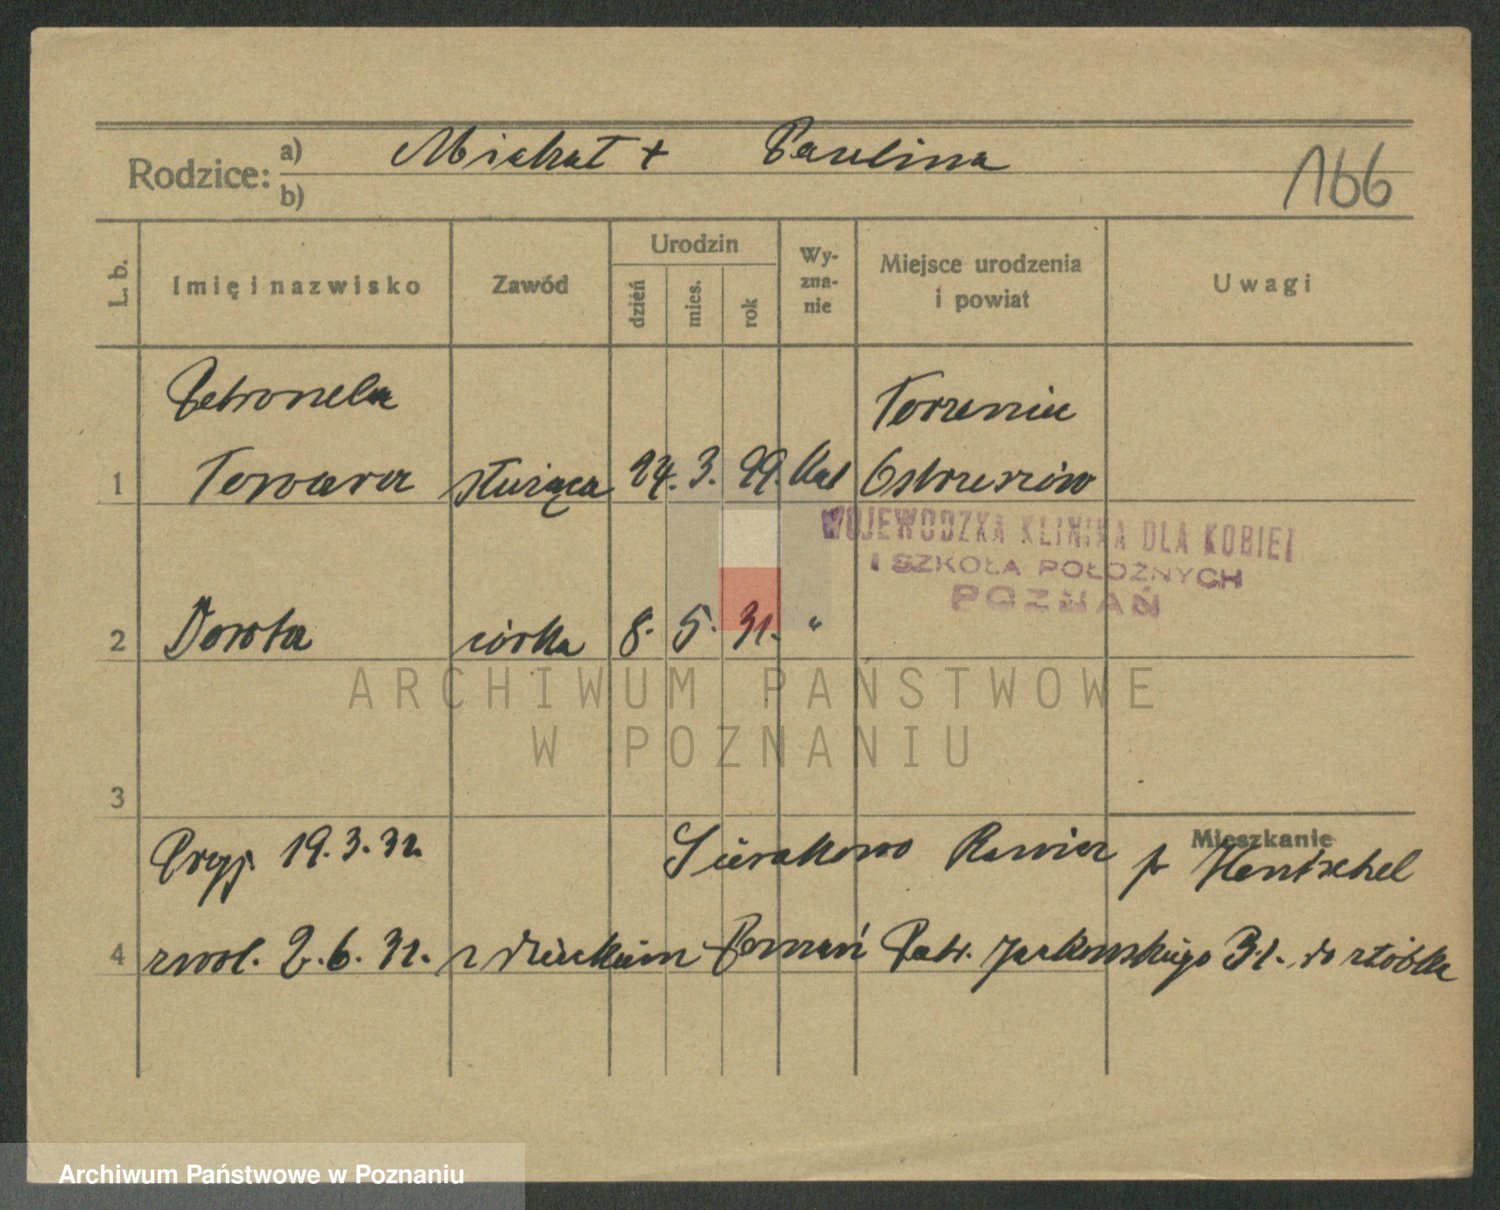 Rodzice: a) Michał + Paulina
b)
166
L. b. Imię i nazwisko Zawód Urodzin dzień mies. rok Wy-zna-nie Miejsce urodzenia i powiat Uwagi
Petronela Torzeniec
1 Towara służąca 24. 3. 99. kat Ostrzeszów
WOJEWÓDZKA KLINIKA DLA KOBIET
I SZKOŁA POŁOŻNYCH
POZNAŃ
2 Dorota córka 8. 5. 31. "
ARCHIWUM PAŃSTWOWE
W POZNANIU
3
Mieszkanie
Przyj. 19.3.32. Sierakowo Rawicz p Hentschel
4 zwol. 2.6.32. z dzieckiem Poznań Patr. Jackowskiego 31. do żłóbka
Archiwum Państwowe w Poznaniu